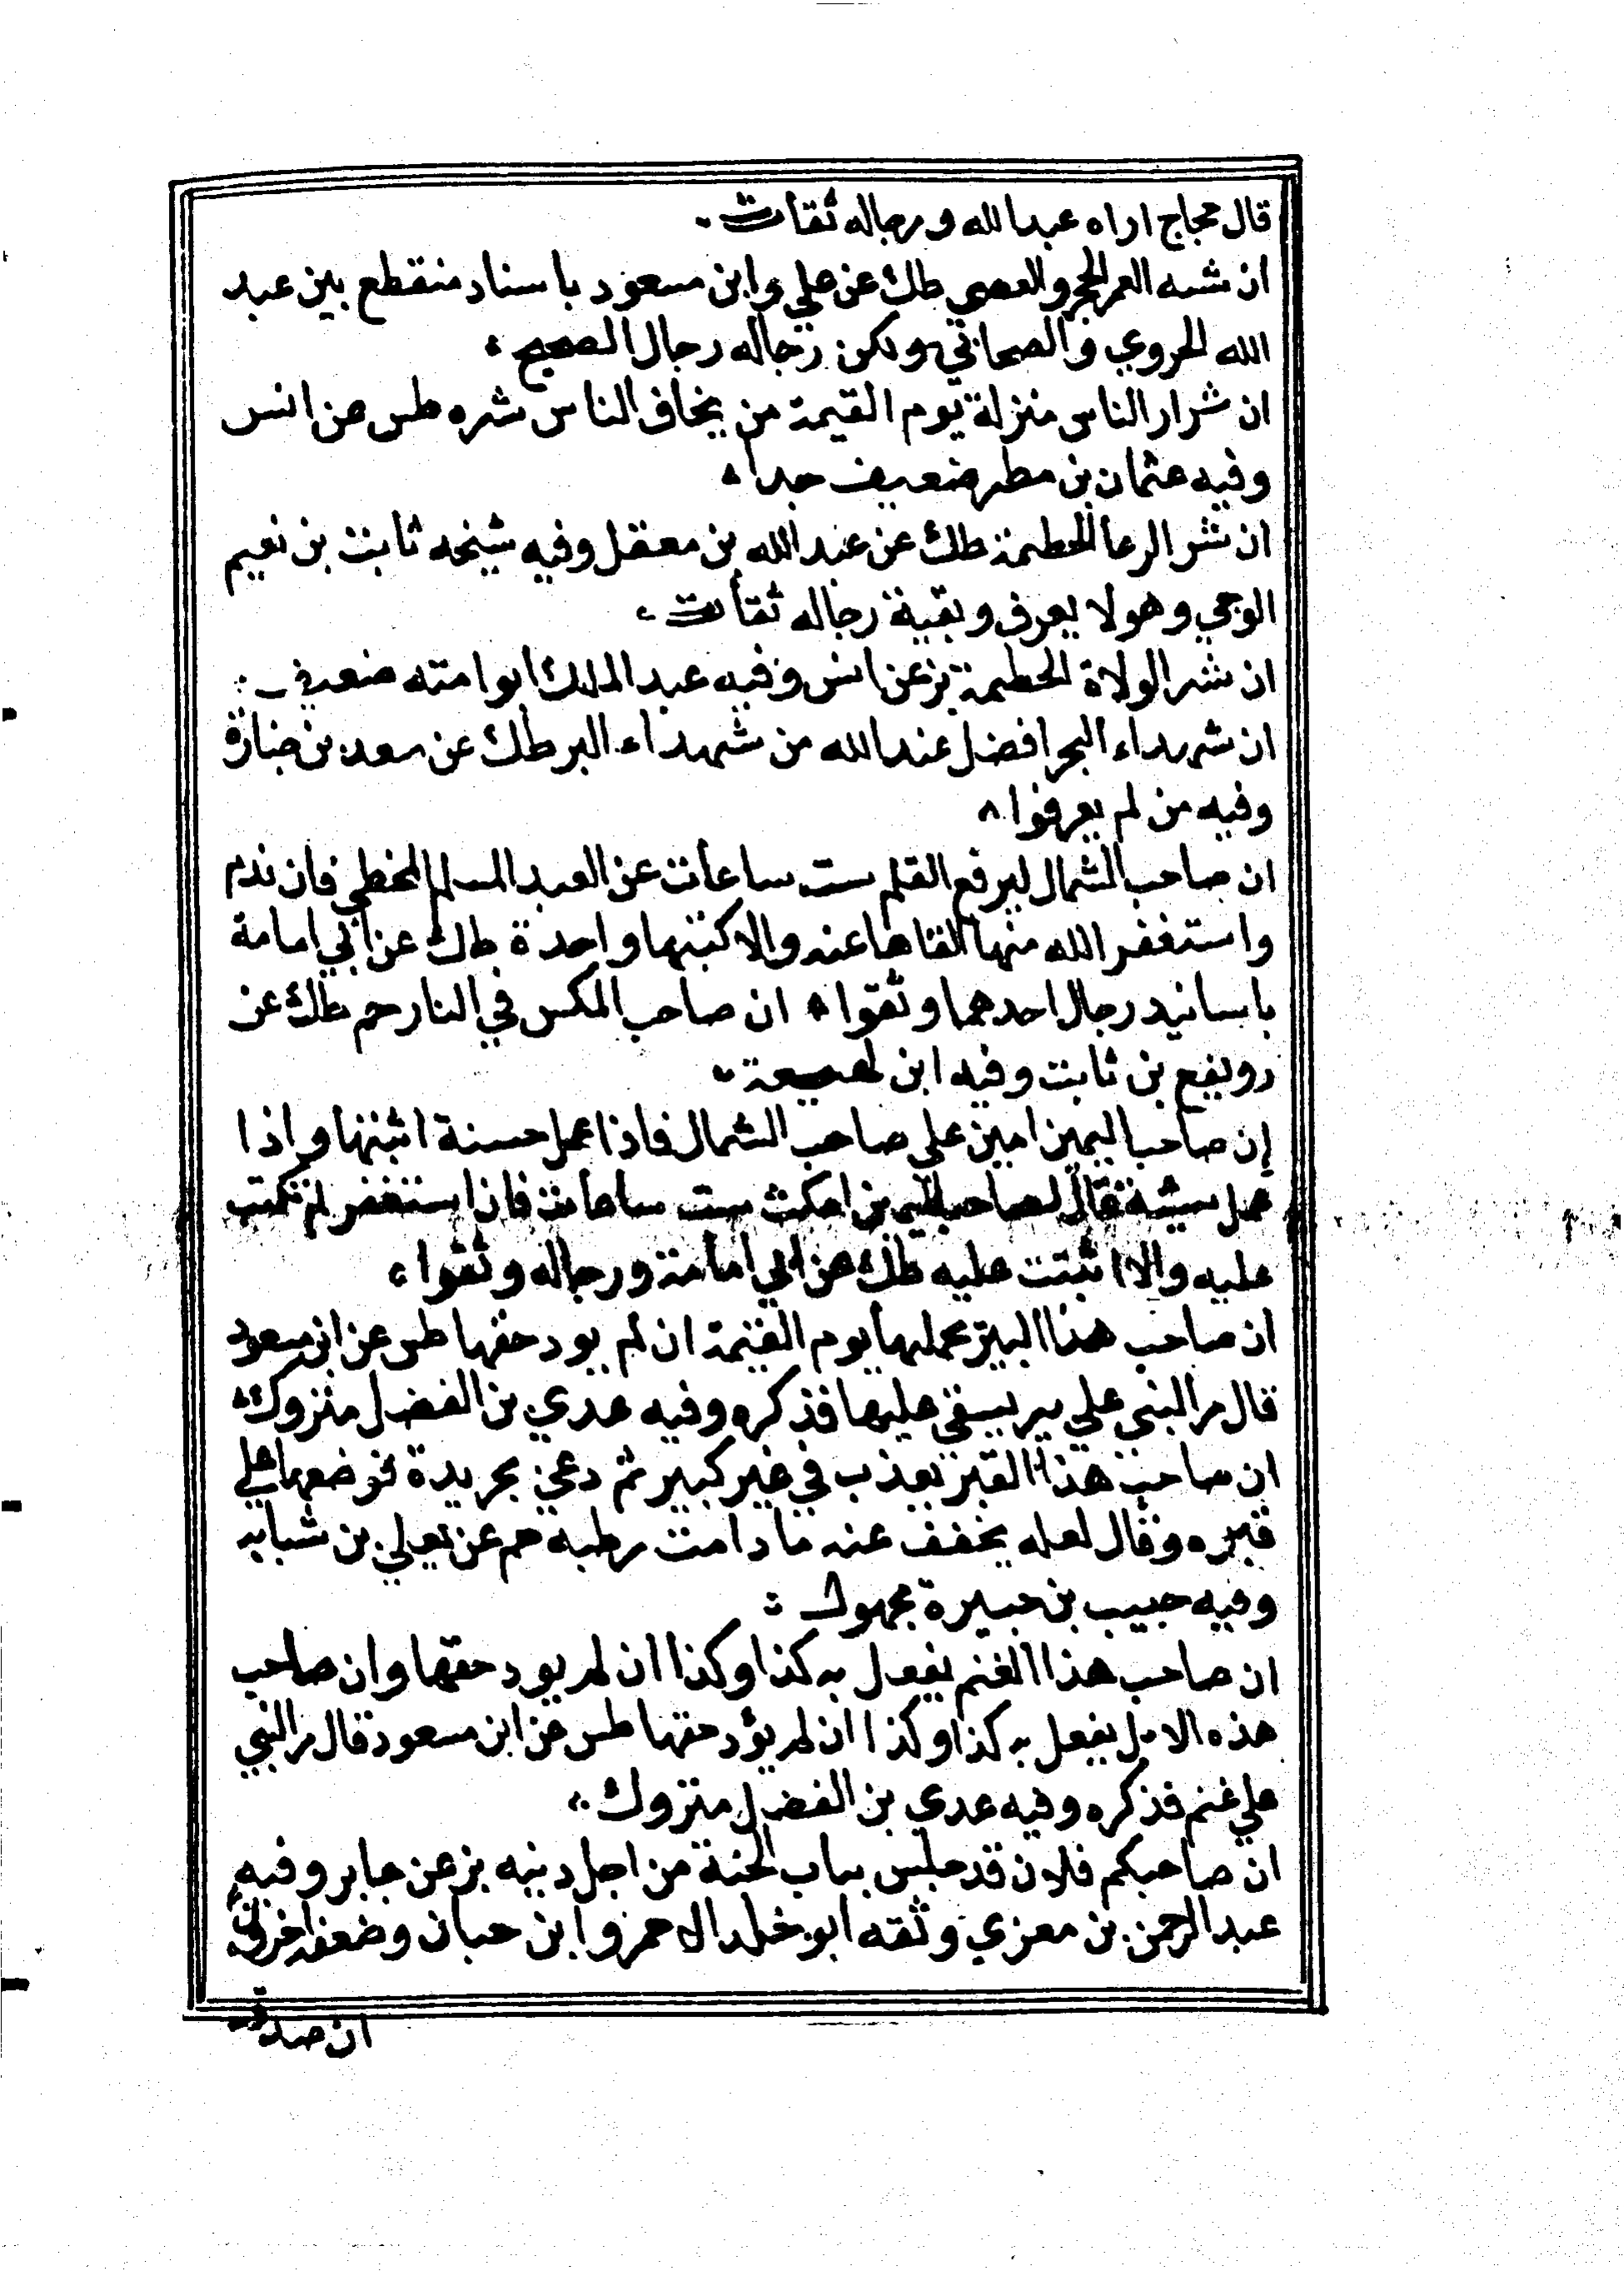 قال حجاج اراه عبدالله ورجاله ثقات
ان شبه العمر الحجر والعصي طك عن علي وابن مسعود باسناد منقطع بين عبد
الله الحروي والصحابي ولكن رجاله رجال الصحيح
ان شرار الناس منزلة يوم القيمة من يخاف الناس شره طس عن انس
وفيه عثمان بن مطر ضعيف جدا
ان شر الرعا الحطمة طك عن عبد الله بن معقل وفيه شيخه ثابت بن نعيم
الوجي وهو لا يعرف وبقية رجاله ثقات
ان شر الولاة الحطمة بز عن انس وفيه عبد الملك ابو امته ضعيف
ان شهداء البحر افضل عند الله من شهداء البر طك عن سعد بن جنارة
وفيه من لم يعرفوا
ان صاحب الشمال ليرفع القلم ست ساعات عن العبد المسلم المخطي فان ندم
واستغفر الله منها القاها عنه والا كتبها واحدة طك عن ابي امامة
باسانيد رجال احدهما وثقوا ان صاحب المكس في النار حم طك عن
رويفع بن ثابت وفيه ابن لهيعة
إن صاحب اليمين امين علي صاحب الشمال فاذا عمل حسنة اثبتها واذا
عمل سيئة فقال لصاحب اليمين امكث ست ساعات فان استغفر لم تكتب
عليه والا اثبتت عليه طك عن ابي امامة ورجاله وثقوا
ان صاحب هذا البير يحملها يوم القيمة ان لم يود حقها طس عن ابن مسعود
قال مر النبي علي بير يسقي عليها فذكره وفيه عدي بن الفضل متروك
ان صاحب هذا القبر يعذب في غير كبير ثم دعي بجريدة فوضعها علي
قبره وقال لعله يخفف عنه ما دامت رطبه حم عن يعلي بن شبابه
وفيه حبيب بن جبيرة مجهول
ان صاحب هذا الغنم يفعل به كذا وكذا ان لم يود حقها وان صاحب
هذه الابل يفعل به كذا وكذا ان لم يؤد حقها طس عن ابن مسعود قال مر النبي
علي غنم فذكره وفيه عدي بن الفضل متروك
ان صاحبكم فلان قد حبس بباب الجنة من اجل دينه بز عن جابر وفيه
عبد الرحمن بن معزي وثقه ابو خلد الاحمر وابن حبان وضعفه اخرون
ان صدقة